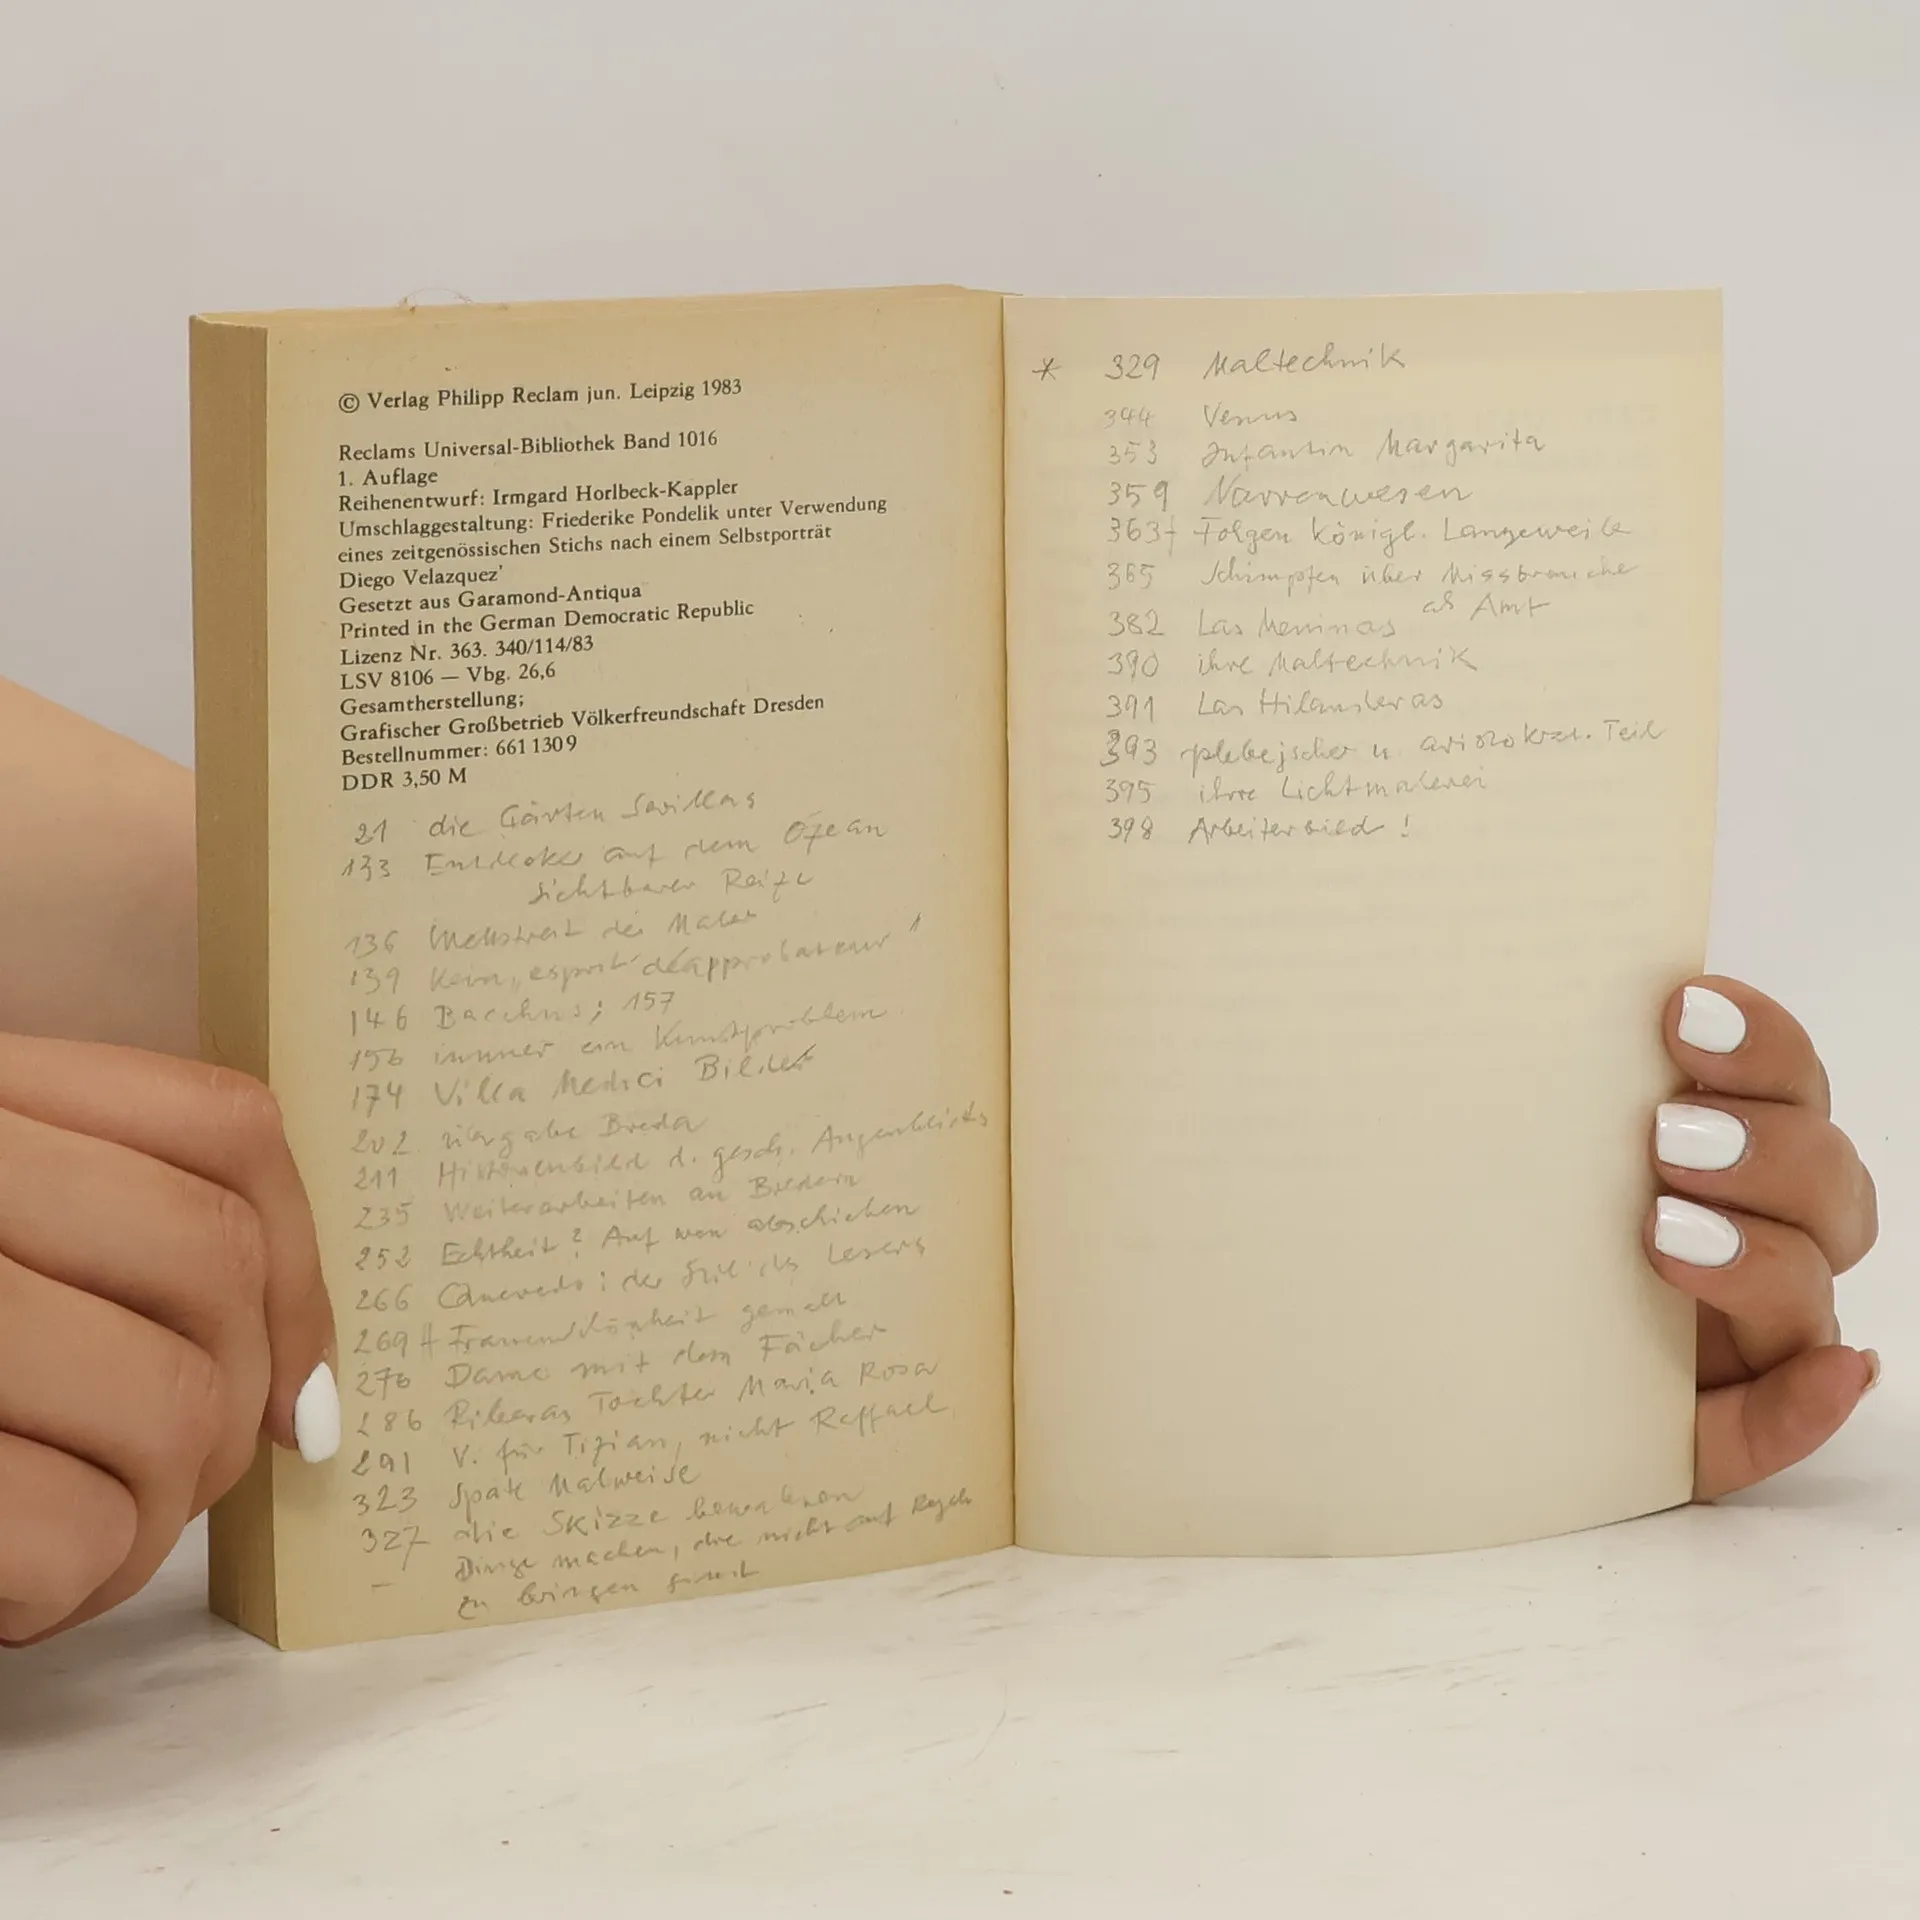 © Verlag Philipp Reclam jun. Leipzig 1983
Reclams Universal-Bibliothek Band 1016
1. Auflage
Reihenentwurf: Irmgard Horlbeck-Kappler
Umschlaggestaltung: Friederike Pondelik unter Verwendung
eines zeitgenössischen Stichs nach einem Selbstporträt
Diego Velazquez'
Gesetzt aus Garamond-Antiqua
Printed in the German Democratic Republic
Lizenz Nr. 363. 340/114/83
LSV 8106 — Vbg. 26,6
Gesamtherstellung;
Grafischer Großbetrieb Völkerfreundschaft Dresden
Bestellnummer: 661 130 9
DDR 3,50 M
21 die Gärten Sevillas
133 Entdecker auf dem Ozean
sichtbarer Reize
136 Wettstreit der Maler
139 Kein „esprit désapprobateur"
146 Bacchus; 157
156 immer ein Kunstproblem
174 Villa Medici Bilder
202 übergabe Breda
211 Historienbild d. gesch. Augenblicks
235 Weiterarbeiten an Bildern
252 Echtheit? Auf
266 Quevedo: der Stil des Lesers
269 Frauenschönheit gemalt
276 Dame mit dem Fächer
286 Riberas Tochter Maria Rosa
291 V. für Tizian, nicht Raffael
323 Späte Malweise
327 die Skizze bewahren
– Dinge machen, die nicht auf
zu bringen sind
* 329 Maltechnik
344 Venus
353 Infantin Margarita
359 Narrenwesen
363f Folgen königl. Langeweile
365 Schimpfen über Missbräuche
als Amt
382 Las Meninas
390 ihre Maltechnik
391 Las Hilanderas
393 plebejscher u. aristokrat. Teil
395 ihre Lichtmalerei
398 Arbeiterbild !